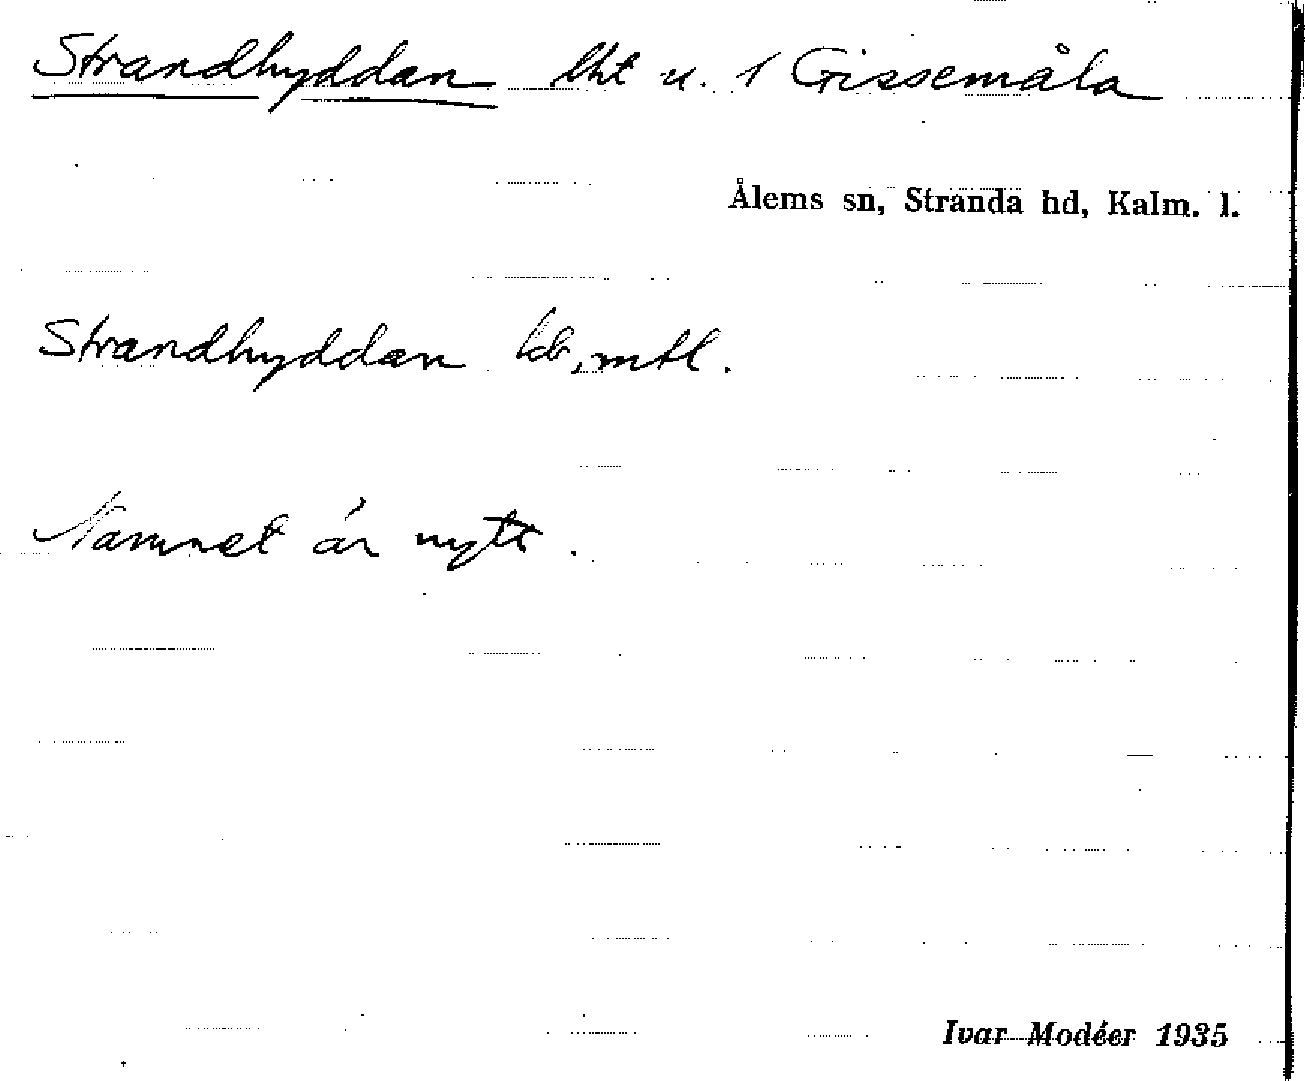 Strandhyddan lht u. 1 Gissemåla
Ålems sn, Stranda hd, Kalm. l.
Strandhyddan kdr, mtl.
Namnet är nytt.
Ivar Modéer 1935